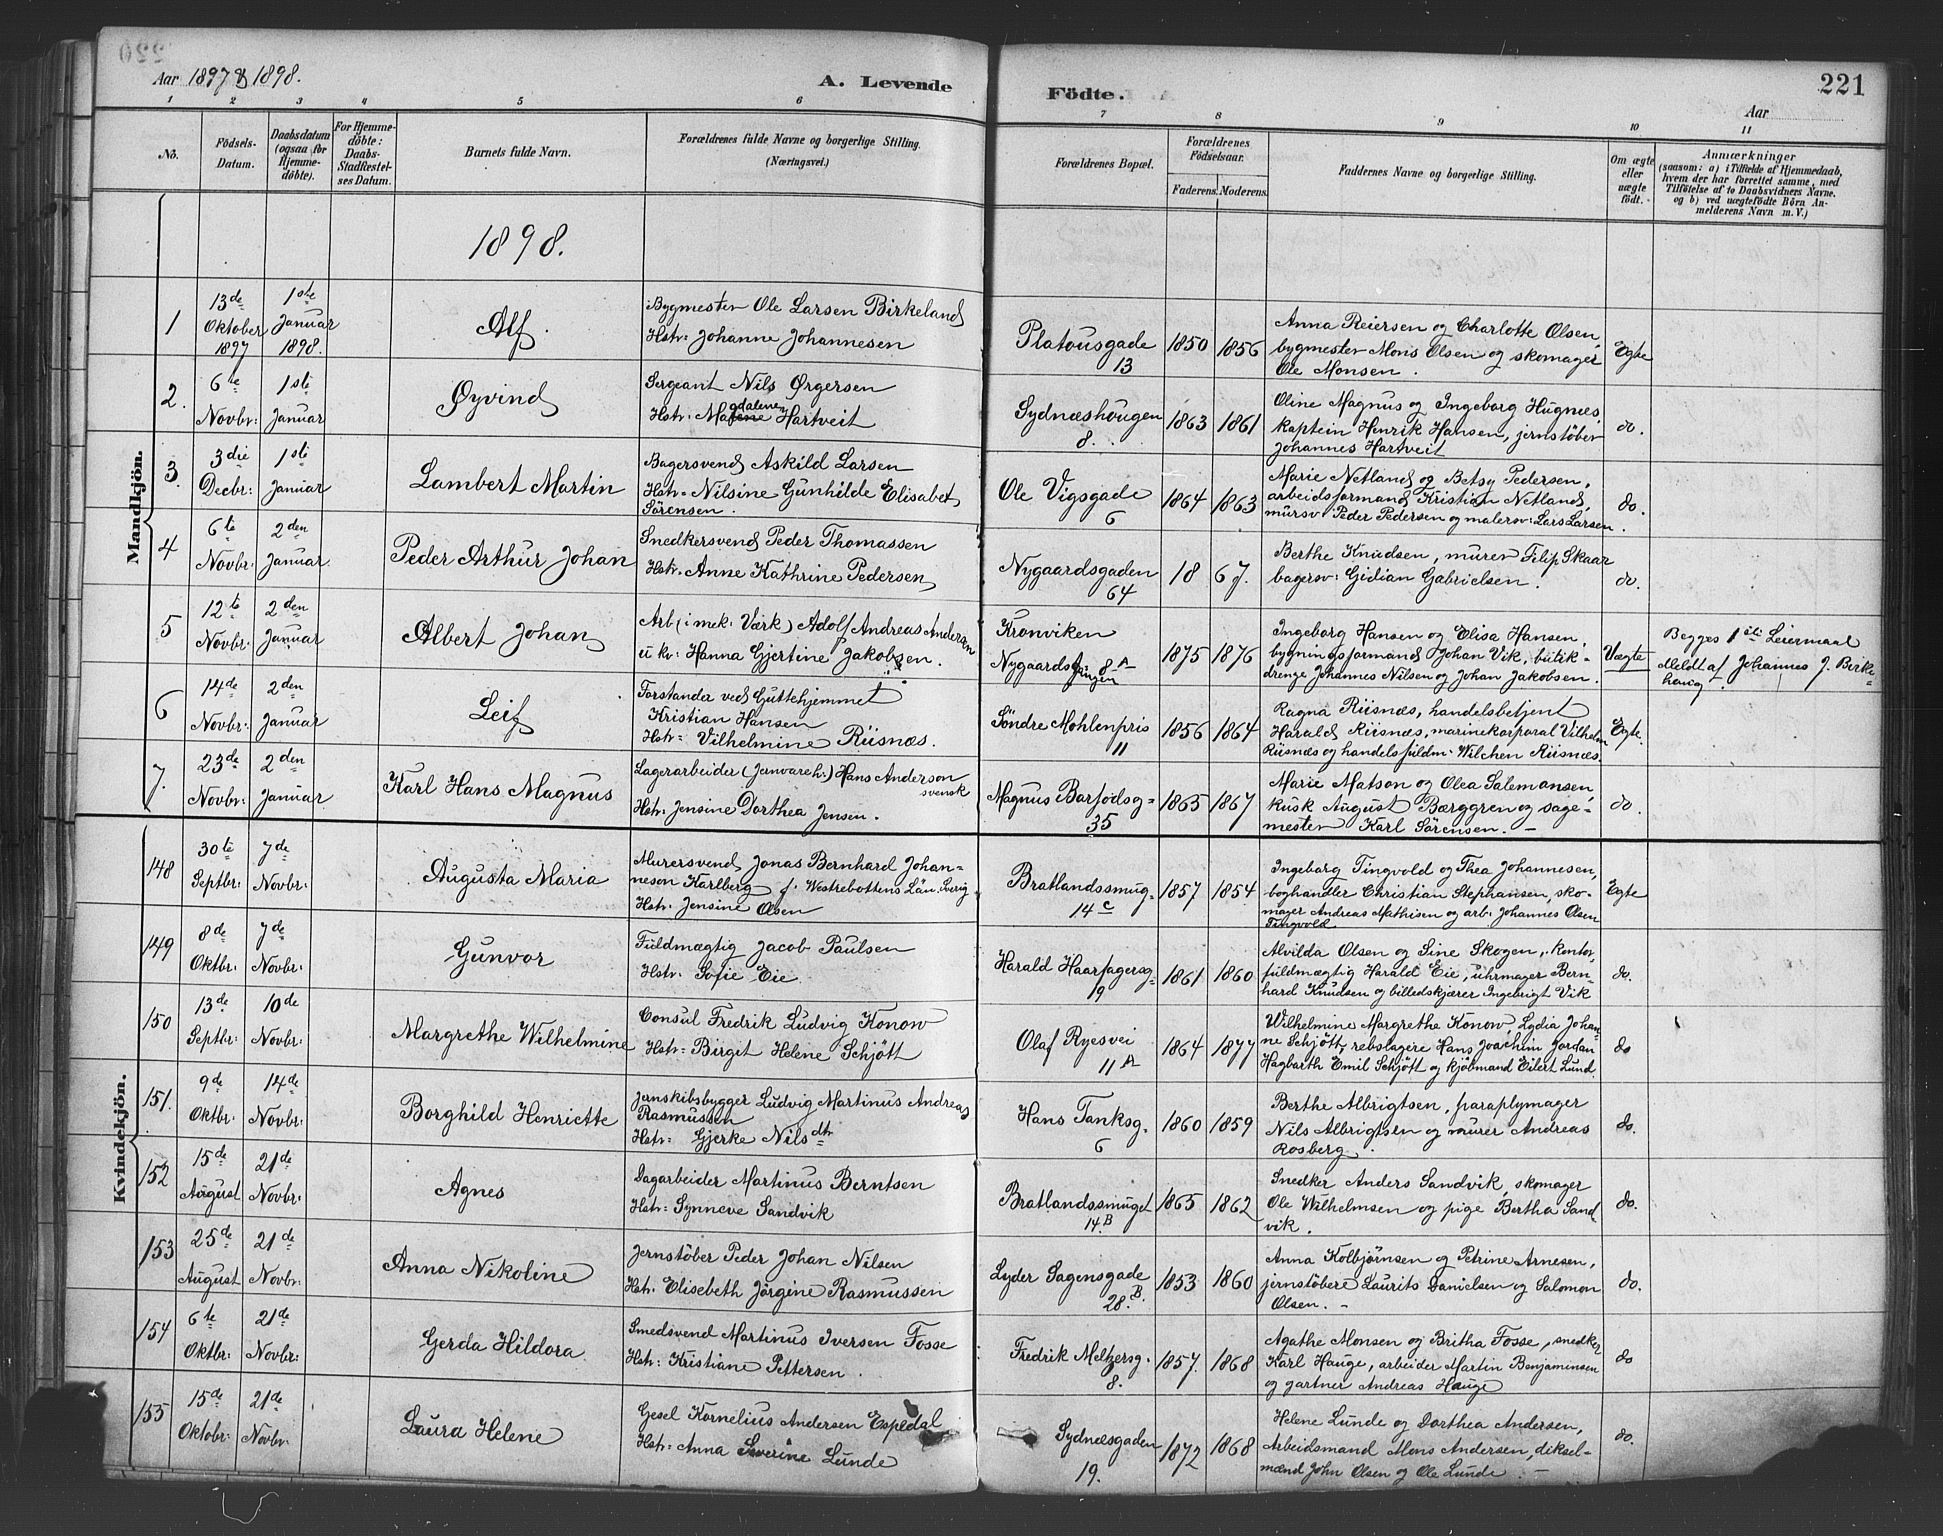 Aar 1897 & 1898.
A. Levende
Födte.
221
Aar
1 2 3 4 5 6 7 8 9 10 11
No.
Födsels-
Datum.
Daabsdatum
(ogsaa for
Hjemme-
döbte).
For Hjemme-
döbte:
Daabs-
Stadfæstel-
ses Datum.
Barnets fulde Navn.
Forældrenes fulde Navne og borgerlige Stilling.
(Næringsvei.)
Forældrenes Bopæl.
Forældrenes
Födselsaar.
Faderens. Moderens.
Faddernes Navne og borgerlige Stilling.
Om ægte
eller
uægte
födt.
Anmærkninger
(saasom: a) i Tilfælde af Hjemmedaab,
hvem der har forrettet samme, med
Tilföielse af to Daabsvidners Navne,
og b) ved uægtefödte Börn An-
melderens Navn m. V.)
1898.
Mandkjön.
1
13de
Oktober
1897
1ste
Januar
1898.
Alf.
Bygmester Ole Larsen Birkeland
Hstr: Johanne Johannesen
Platousgade
13
1850 1856
Anna Reiersen og Charlotte Olsen,
bygmester Mons Olsen og skomager
Ole Monsen.
Egte
2.
6te
Novbr:
1ste
Januar
Øyvind
Sergeant Nils Ørgersen
Hstr: Magdalene Hartveit
Sydnæshougen
8.
1863 1861
Oline Magnus og Ingeborg Hugnæs,
kaptein Henrik Hansen, jernstöber
Johannes Hartveit
do.
3.
3die
Decbr:
1ste
Januar
Lambert Martin
Bagersvend Askild Larsen
Hstr: Nilsine Gunhilde Elisabet
Sörensen.
Ole Vigsgade
6
1864 1863
Marie Netland og Betsy Pedersen,
arbeidsformand Kristian Netland,
mursv: Peder Pedersen og malersv: Lars Larsen.
do.
4
6te
Novbr:
2den
Januar
Peder Arthur Johan
Snedkersvend Peder Thomassen
Hstr. Anne Kathrine Pedersen
Nygaardsgaden
64
18 67.
Berthe Knudsen, murer Filip Skaar
bagersv: Gidian Gabrielsen.
do.
5
12te
Novbr:
2den
Januar
Albert Johan
Arb (i mek: Værk) Adolf Andreas Andersen
u kv: Hanna Gjertine Jakobsen.
Kronviken
Nygaards 8A
1875 1876
Ingeborg Hansen og Elisa Hansen,
bygningsformand Johan Vik, butik-
drenge Johannes Nilsen og Johan Jakobsen.
Uægte
Begges 1ste Leiermaal
Meldt af Johannes J. Birke-
haug.
6
14de
Novbr:
2den
Januar
Leif
Forstander ved Guttehjemmet
Kristian Hansen
Hstr: Vilhelmine Riisnæs.
Söndre Mohlenpris
11
1856 1864
Ragna Riisnæs, handelsbetjent
Harald Riisnæs, marinekorporal Vilhelm
Riisnæs og handelsfuldm: Wilchen Riisnæs.
Egte.
7.
23de
Novbr:
2den
Januar
Karl Hans Magnus
Lagerarbeider (Jernvareh:) Hans Anderson
svensk
Hstr: Jensine Dorthea Jensen.
Magnus Barfodsg:
35
1865 1867
Marie Matson og Olea Salemonsen,
kusk August Bærggren og sage-
mester Karl Sörensen. —
do.
Kvindekjön.
148
30te
Septbr:
7de
Novbr:
Augusta Maria
Murersvend Jonas Bernhard Johan-
neson Karlberg f. Westrebottens Län Sverig
Hstr: Jensine Olsen
Bratlandssmug:
14c
1857 1854
Ingeborg Tingvold og Thea Johannesen,
boghandler Christian Stephansen, sko-
mager Andreas Mathisen og arb: Johannes Olsen
Tingvold
Egte
149
8de
Oktbr:
7de
Novbr:
Gunvor
Fuldmægtig Jacob Paulsen
Hstr: Sofie Eie
Harald Haarfagersg:
19
1861 1860
Alvilda Olsen og Sine Skogen, kontor
fuldmægtig Harald Eie, uhrmager Bern-
hard Knudsen og billedskjærer Ingebrigt Vik
do.
150
13de
Septbr:
10de
Novbr:
Margrethe Wilhelmine
Consul Fredrik Ludvig Konow
Hstr: Birgit Helene Schjött
Olaf Ryesvei
11 A
1864 1877
Wilhelmine Margrethe Konow, Lydia Johan-
ne Schjött, rebslagere Hans Joachim Jordan
Hagbarth Emil Schjött og kjöbmand Eilert Lund.
do
151.
9de
Oktbr:
14de
Novbr:
Borghild Henriette
Jernskibsbygger Ludvig Martinus Andreas
Rasmussen
Hstr: Gjerke Nilsdtr
Hans Tanksg.
6
1860 1859
Berthe Albrigtsen, paraplymager
Nils Albrigtsen og murer Andreas
Rosberg.
do.
152
15de
August
21de
Novbr:
Agnes
Dagarbeider Martinus Berntsen
Hstr: Synneve Sandvik
Bratlandssmuget
14.B
1865 1862
Snedker Anders Sandvik, skomager
Ole Wilhelmsen og pige Bertha Sand
vik.
do.
153
25de
August
21de
Novbr:
Anna Nikoline
Jernstöber Peder Johan Nilsen
Hstr. Elisebeth Jörgine Rasmussen
Lyder Sagensgade
28.B.
1853 1860
Anna Kolbjörnsen og Petrine Arnesen,
jernstöbere Laurits Danielsen og Salomon
Olsen. —
do.
154
6te
Oktbr:
21de
Novbr:
Gerda Hildora
Smedsvend Martinus Iversen Fosse
Hstr: Kristiane Pettersen.
Fredrik Meltzersg.
8.
1857. 1868
Agathe Monsen og Britha Fosse, snedker
Karl Hauge, arbeider Martin Benjaminsen
og gartner Andreas Hauge
do
155
15de
Oktobr:
21de
Novbr:
Laura Helene
Gesel Kornelius Andersen Espedal
Hstr: Anna Severine Lunde
Sydnæsgaden
19.
1872 1868
Helene Lunde og Dorthea Andersen,
Arbeidsmand Mons Andersen, diksel-
mænd John Olsen og Ole Lunde. —
do.